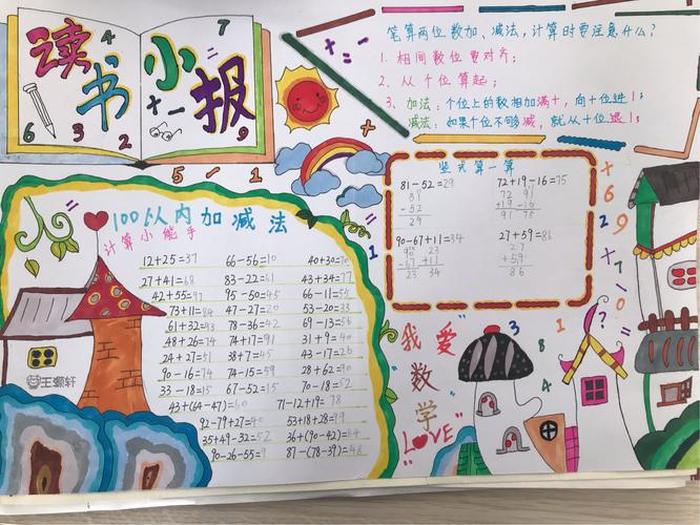 读书小报
笔算两位数加、减法，计算时要注意什么？
1. 相同数位要对齐；
2. 从个位算起；
3. 加法：个位上的数相加满十，向十位进1；
减法：如果个位不够减，就从十位退1；
竖式算一算
81-52=29 72+19-16=75
90-67+11=34 27+59=86
100以内加减法
计算小能手
12+25=37 66-56=10 40+30=70
27+41=68 83-22=61 43+34=77
42+55=97 95-50=45 66-11=55
73+11=84 47-27=20 53-20=33
61+32=93 78-36=42 69-13=56
48+26=74 74+17=91 31+9=40
24+27=51 38+7=45 43-17=26
90-16=74 74-15=59 28+62=90
33-18=15 67-52=15 70-18=52
43+(64-47)=60 71-12+19=78
92-79+27=40 53+18+28=99
35+49-32=52 36+(90-42)=84
90-26-55=9 87-(78-39)=48
我爱
"数
学"
LOVE
王娜轩